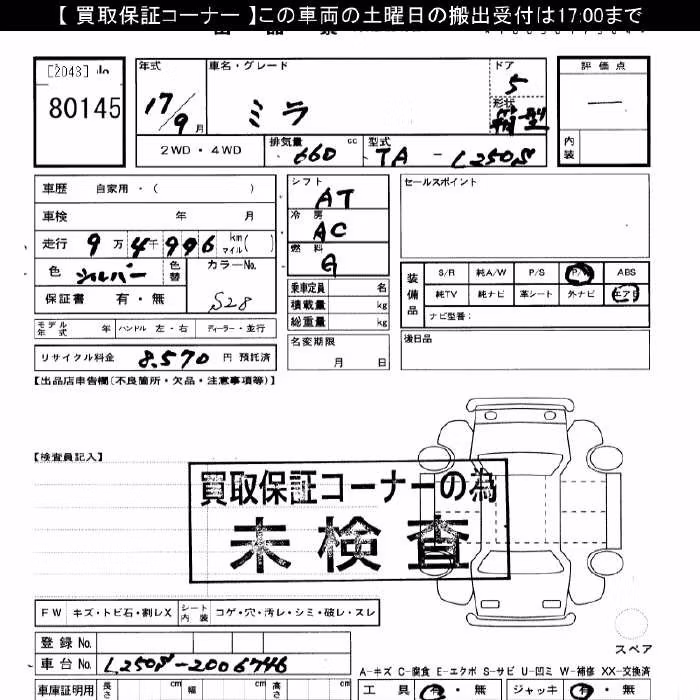 【 買取保証コーナー 】この車両の土曜日の搬出受付は17:00まで
[2043]
80145
年式
17/9月
車名・グレード
ミラ
ドア
5
形状
箱型
評価点
内装
2WD・4WD
排気量 660 cc
型式 TA - L250S
車歴 自家用・( )
車検 年 月
走行 9万4千996 km マイル( )
色 シルバー 色替
カラーNo. S28
保証書 有・無
シフト AT
冷房 AC
燃料 G
乗車定員 名
積載量 kg
総重量 kg
セールスポイント
装備品
S/R 純A/W P/S P/W ABS
純TV 純ナビ 革シート 外ナビ エアB
ナビ型番:
モデル年式 年 ハンドル 左・右 ディーラー・並行
リサイクル料金 8,570 円 預託済
名変期限 月 日
後日品
【出品店申告欄(不良箇所・欠品・注意事項等)】
【検査員記入】
買取保証コーナーの為
未検査
FW キズ・トビ石・割レX シート内装 コゲ・穴・汚レ・シミ・破レ・スレ
登録 No.
車台 No. L250S-2006746
スペア
A-キズ C-腐食 E-エクボ S-サビ U-凹ミ W-補修 XX-交換済
車庫証明用 長さ cm 幅 cm 高さ cm
工具 有・無 ジャッキ 有・無